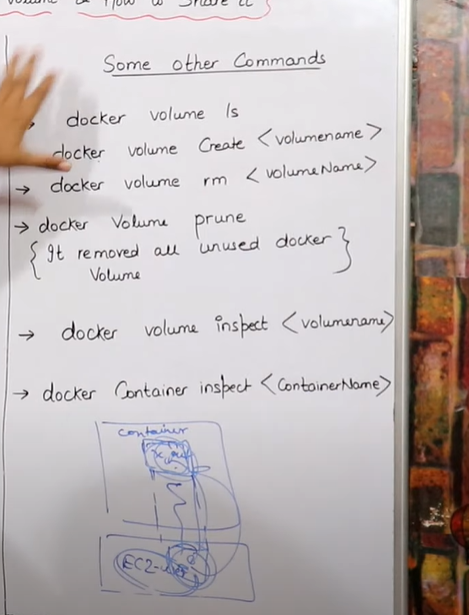 Volume & How to Share it
Some other Commands
docker volume ls
docker volume Create <volumename>
→ docker volume rm <volumeName>
→ docker Volume prune
{ It removed all unused docker }
Volume
→ docker volume inspect <volumename>
→ docker Container inspect <ContainerName>
container
EC2-